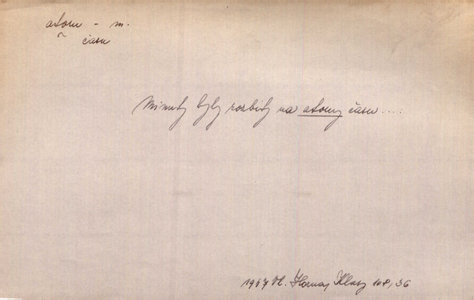 atom - m.
~ času
Minuty byly rozbity na atomy času....
1947 Vl. Hornay, Klasy 108, 36